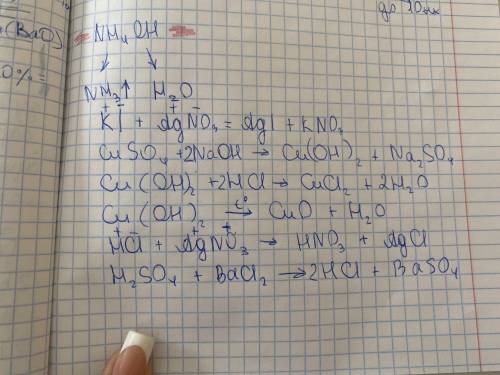 до 10mx
(BaO)
NH₄OH
0% =
NH₃↑ H₂O
KI + AgNO₃ = AgI + KNO₃
CuSO₄ + 2NaOH → Cu(OH)₂ + Na₂SO₄
Cu(OH)₂ + 2HCl → CuCl₂ + 2H₂O
Cu(OH)₂ →t° CuO + H₂O
HCl + AgNO₃ → HNO₃ + AgCl
H₂SO₄ + BaCl₂ → 2HCl + BaSO₄